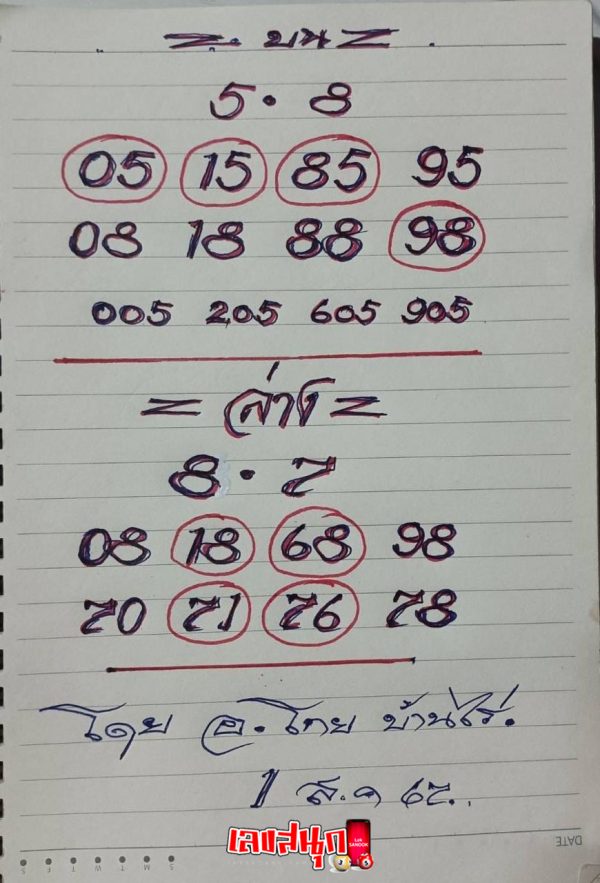 = บน =
5 · 8
05 15 85 95
08 18 88 98
005 205 605 905
= ล่าง =
8 · 7
08 18 68 98
70 71 76 78
โดย อ. ไทย บ้านไร่.
1 ส.ค 67..
เลขสนุก
Lek
SANOOK
DATE
S M T W T F S